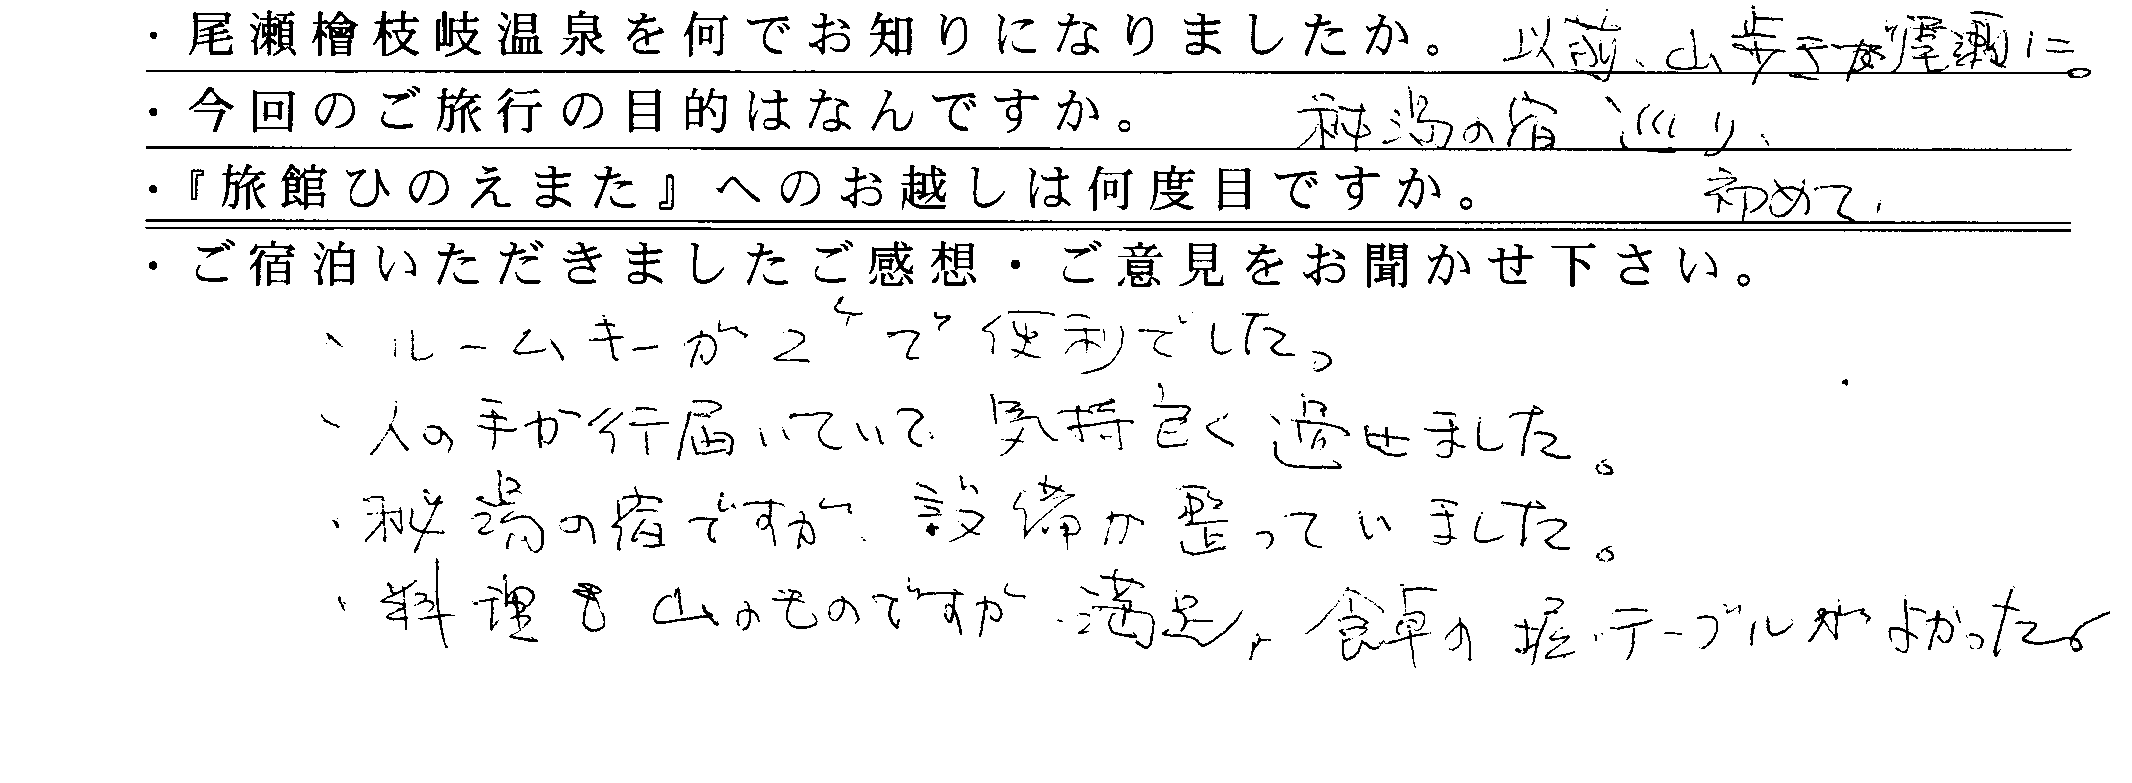 ・尾瀬檜枝岐温泉を何でお知りになりましたか。 以前、山歩きが尾瀬に。
・今回のご旅行の目的はなんですか。 秘湯の宿巡り、
・『旅館ひのえまた』へのお越しは何度目ですか。 初めて、
・ご宿泊いただきましたご感想・ご意見をお聞かせ下さい。
、ルームキーが2ケで便利でした。
、人の手が行届いていて、気持良く過せました。
・秘湯の宿ですが、設備が整っていました。
・料理も山のものですが、満足、食卓の堀テーブルがよかった。